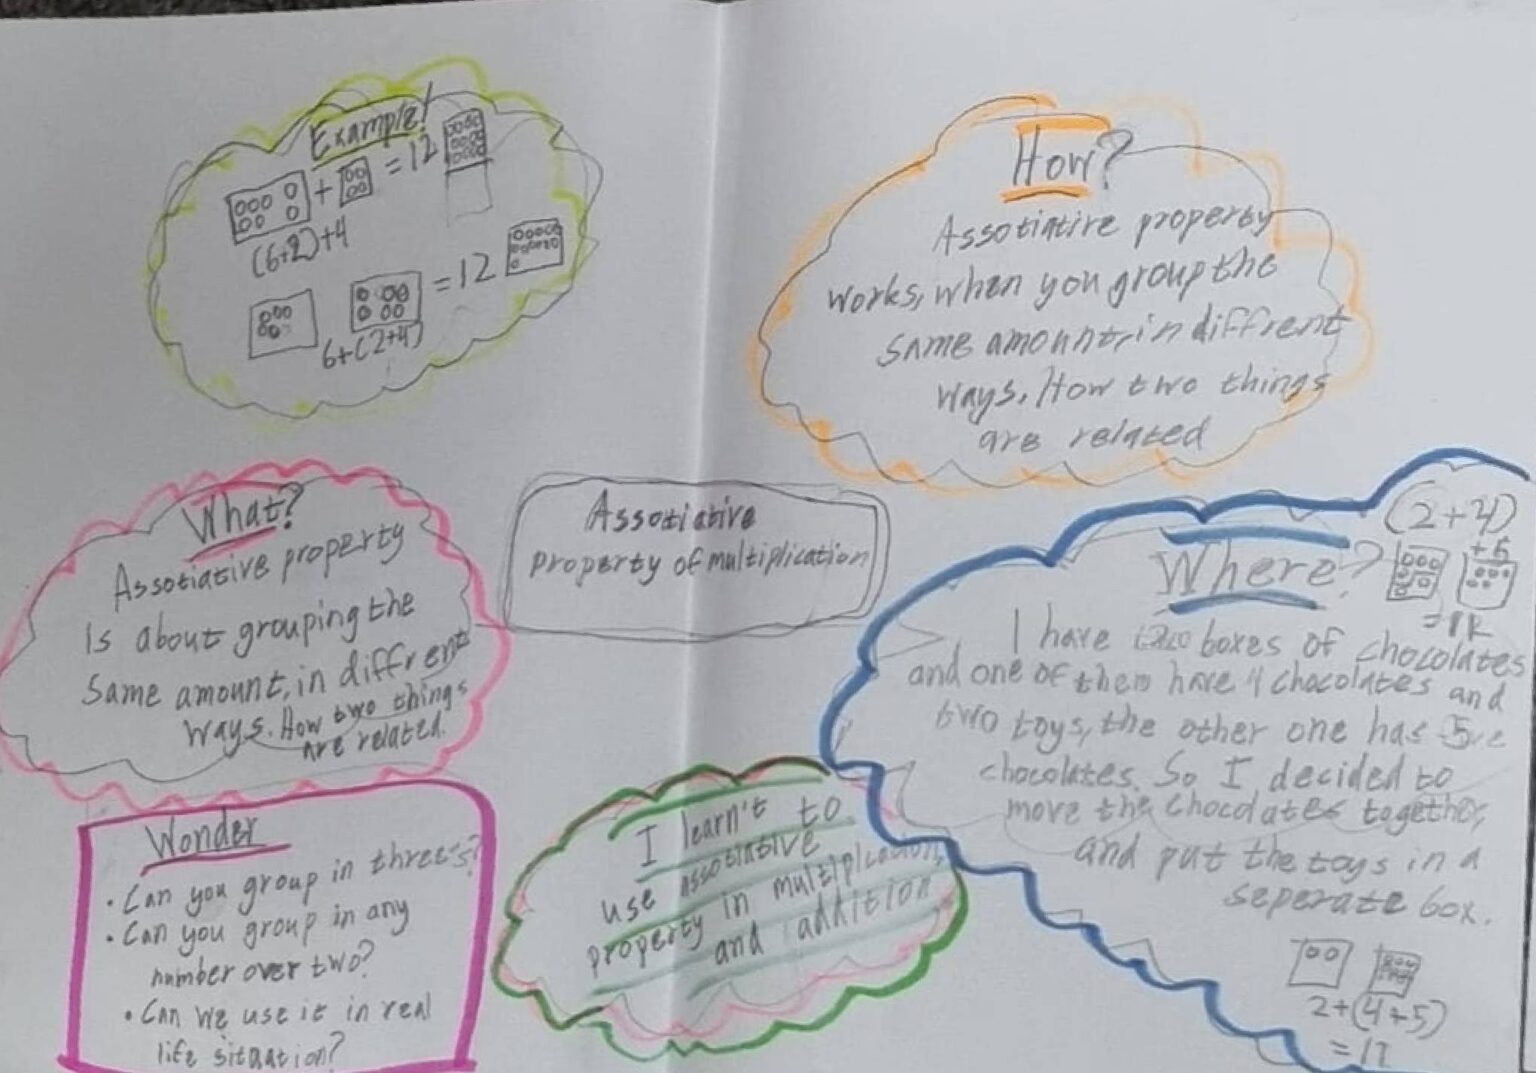 Example!
+ = 12
(6+2)+4
= 12
6+(2+4)
How?
Assotiative property
works, when you group the
same amount, in diffrent
ways. How two things
are related
What?
Assotiative property
is about grouping the
same amount, in diffrent
ways. How two things
are related.
Assotiative
property of multiplication
(2+4)
+5
Where?
I have two boxes of chocolates
and one of them have 4 chocolates and
two toys, the other one has 5
chocolates. So I decided to
move the chocolates together,
and put the toys in a
seperate box.
2+(4+5)
= 11
Wonder
• Can you group in three's?
• Can you group in any
number over two?
• Can we use it in real
life situation?
I learn't to
use assotiative
property in multiplication,
and addition